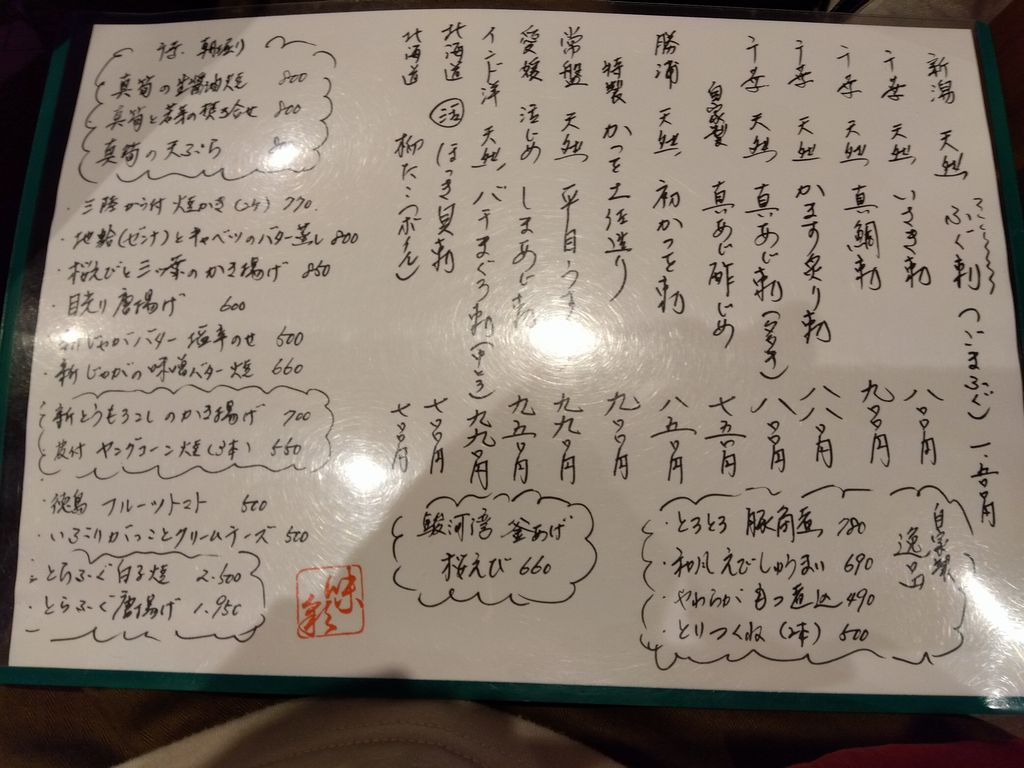 新潟 天然 ふぐ刺(つごまふぐ) 一.五〇〇円
千葉 天然 いさき刺 八〇〇円
千葉 天然 真鯛刺 九〇〇円
千葉 天然 かます炙り刺 八八〇円
千葉 天然 真あじ刺(タタキ) 八〇〇円
自家製 真あじ酢じめ 七五〇円
勝浦 天然 初かつを刺 八五〇円
特製 かつを土佐造り 九〇〇円
常盤 天然 平目うす 九九〇円
愛媛 活じめ しまあじ刺 九五〇円
インド洋 天然 バチまぐろ刺(中とろ) 九九〇円
北海道 活 ほっき貝刺 七〇〇円
北海道 柳たこ 七〇〇円
朝堀り
真筍の生醤油焼 800
真筍と若菜の 800
真筍の天ぷら
・三陸から付 焼かき(2ケ) 770
・地蛤(ゼンナ)とキャベツのバター蒸し 800
・桜えびと三ツ葉のかき揚げ 850
・目光り唐揚げ 600
新じゃがバター 塩辛のせ 500
・新じゃがの味噌バター焼 660
・新とうもろこしのかき揚げ 700
・皮付 ヤングコーン焼(3本) 550
・徳島 フルーツトマト 500
・いぶりがっことクリームチーズ 500
・とらふぐ白子焼 2.500
・とらふぐ唐揚げ 1.950
味彩
駿河湾 釜あげ
桜えび 660
自家製 逸品
・とろとろ 豚角煮 780
・和風えびしゅうまい 690
・やわらかもつ煮込 490
・とりつくね(2本) 500